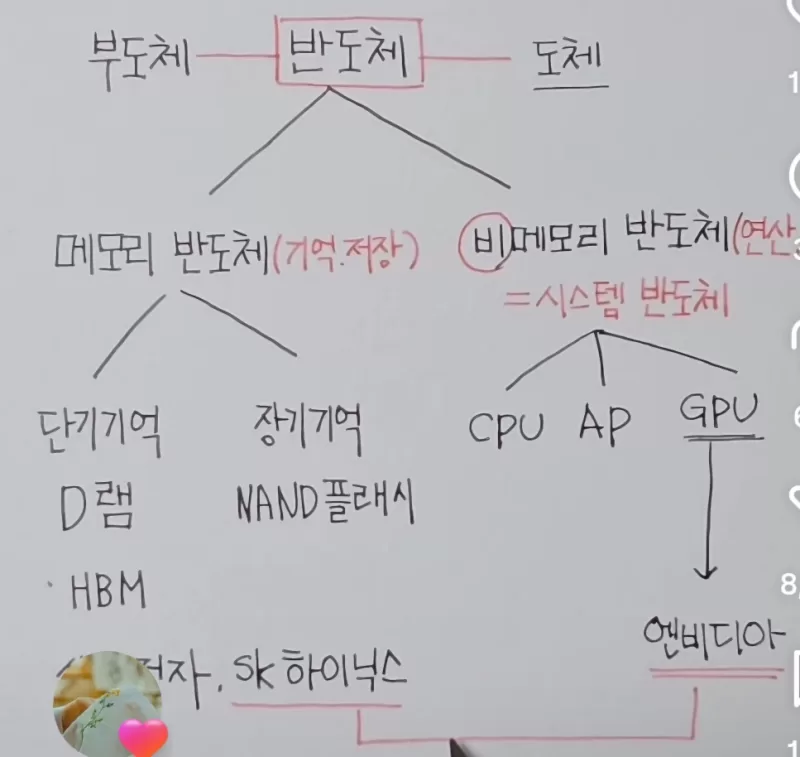 부도체 반도체 도체
메모리 반도체(기억.저장) 비메모리 반도체(연산
=시스템 반도체
단기기억 장기기억 CPU AP GPU
D램 NAND플래시
HBM
엔비디아
전자, SK하이닉스